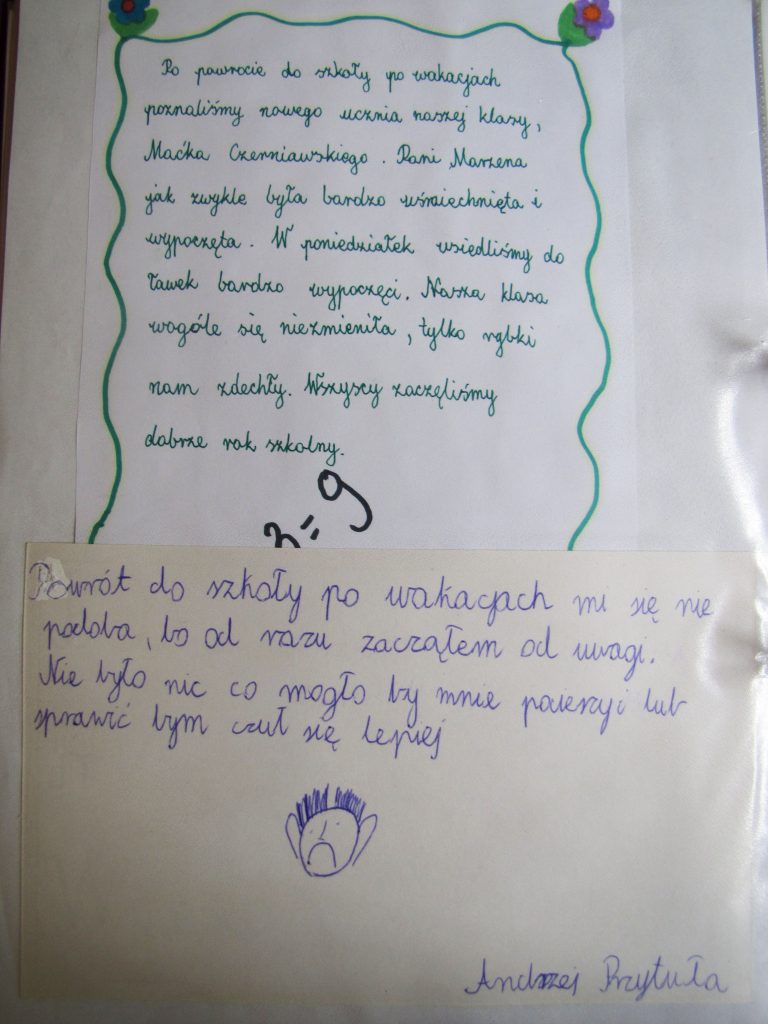 Po powrocie do szkoły po wakacjach
poznaliśmy nowego ucznia naszej klasy,
Maćka Czerniawskiego. Pani Marzena
jak zwykle była bardzo uśmiechnięta i
wypoczęta. W poniedziałek usiedliśmy do
ławek bardzo wypoczęci. Nasza klasa
wogóle się niezmieniła, tylko rybki
nam zdechły. Wszyscy zaczęliśmy
dobrze rok szkolny.
3=9
Powrót do szkoły po wakacjach mi się nie
podoba, bo od razu zacząłem od uwagi.
Nie było nic co mogło by mnie lub
sprawić bym czuł się lepiej
Andrzej Przytuła